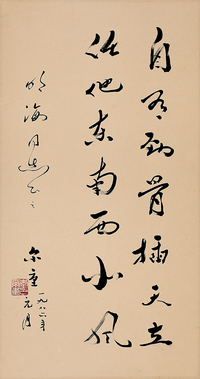 自有韧骨插天立
任他东南西北风
明海同志正之
尔重
一九八二年
元月